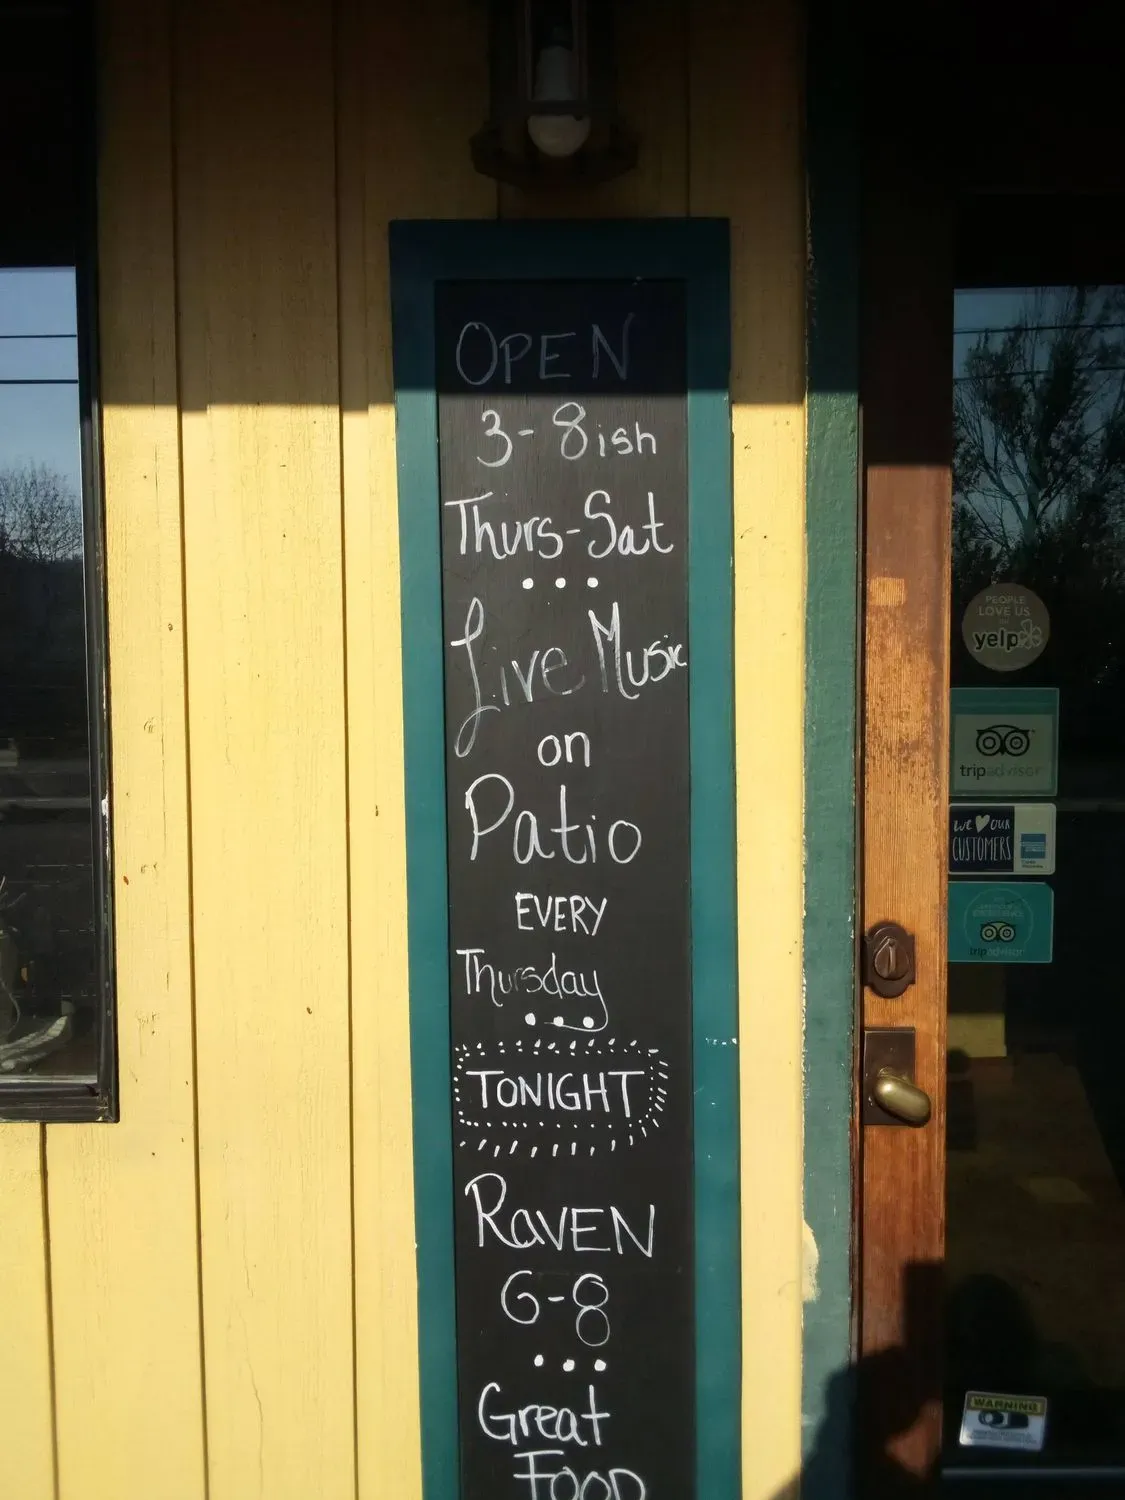 OPEN
3-8ish
Thurs-Sat
Live Music
on
Patio
EVERY
Thursday
TONIGHT
RAVEN
6-8
Great
FOOD
PEOPLE
LOVE US
ON
yelp
tripadvisor
WE OUR
CUSTOMERS
tripadvisor
WARNING